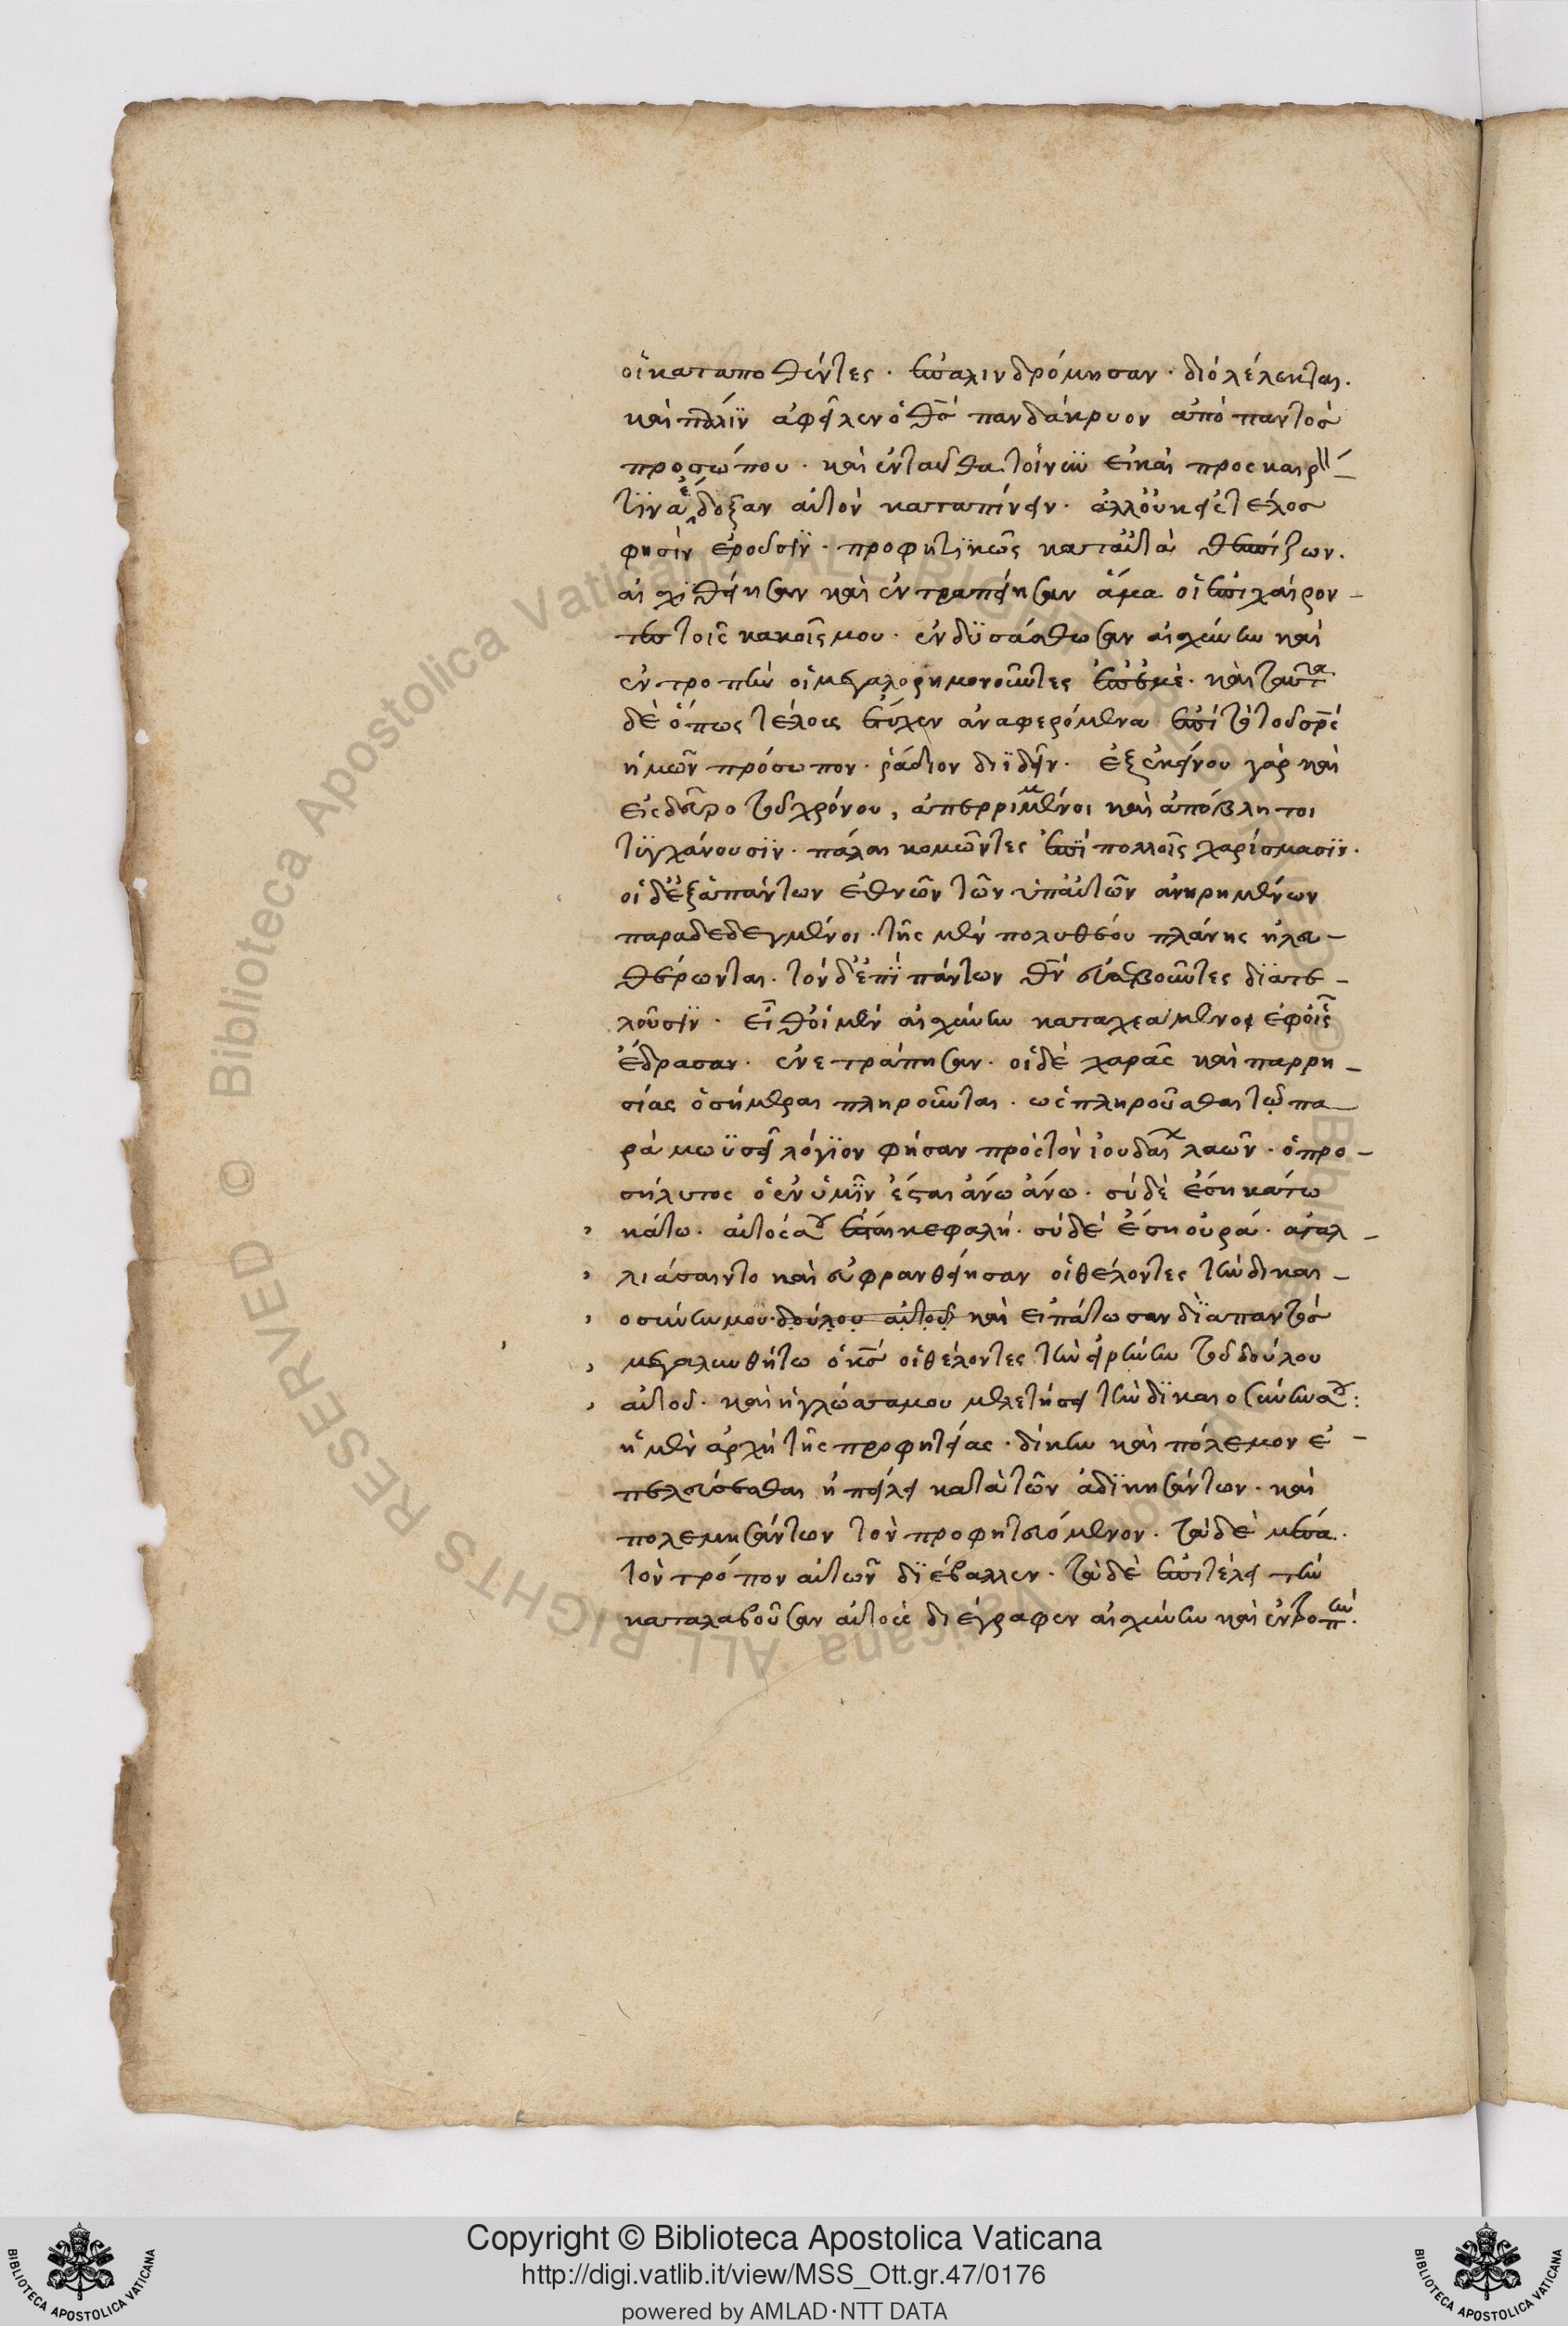 οἱ καταποθέντες · ἐπαλινδρόμησαν · διὸ λέλεκται.
καὶ πάλϊν ἀφεῖλεν ὁ θ̅ς̅ πᾶν δάκρυον ἀπὸ παντὸς
προσώπου · καὶ ἐνταῦθα τοίνυν εἰ καὶ προσκαιρ
τϊνὰ ἔδοξαν αὐτὸν καταπίνειν · ἀλλ' οὐκ εἰς τέλος
φησὶν ἐροῦσϊν · προφητϊκῶς κατ' αὐτὰ θεσπίζων.
αἰσχϋνθείησαν καὶ ἐντραπείησαν ἅμα οἱ ἐπιχαίρον -
τες τοῖς κακοῖς μου · ἐνδϋσάσθωσαν αἰσχύνην καὶ
ἐντροπὴν οἱ μεγαλορημονοῦντες ἐπ' ἐμέ · καὶ ταῦτα
δὲ ὅπως τέλους ἔτυχεν ἀναφερόμενα ἐπὶ τὸ τοῦ σ̅ρ̅ς̅
ἡμῶν πρόσωπον · ῥάδιον δϊϊδεῖν · ἐξ ἐκείνου γὰρ καὶ
εἰς δεῦρο τοῦ χρόνου, ἀπερριμμένοι καὶ ἀπόβλητοι
τϋγχάνουσϊν · πάλαι κομῶντες ἐπὶ πολλοῖς χαρίσμασϊν ·
οἱ δὲ ἐξ ἁπάντων ἐθνῶν τῶν ὑπ' αὐτῶν ἀνηρημένων
παραδεδεγμένοι · τῆς μὲν πολυθέου πλάνης ἠλευ -
θέρωνται · τὸν δ' ἐπὶ πάντων θ̅ν̅ εὐσεβοῦντες δϊατε -
λοῦσϊν · εἶθ' οἱ μὲν αἰσχύνην καταχεάμενοι ἐφ' οἷς
ἔδρασαν · ἐνετράπησαν · οἱ δὲ χαρᾶς καὶ παρρη -
σίας ὁσημέραι πληροῦνται · ὡς πληροῦσθαι τὸ πα
ρὰ μωϋσεῖ λόγϊον φῆσαν πρὸς τὸν ἰουδαϊκ λαῶν · ὁ προ -
σήλυτος ὁ ἐν ὑμῖν ἔσται ἄνω ἄνω · σὺ δὲ ἔση κάτω
κάτω · αὐτὸς σου ἔσται κεφαλή · σὺ δὲ ἔση οὐρά · ἀγαλ -
λιάσαιντο καὶ εὐφρανθείησαν οἱ θέλοντες τὴν δικαι -
οσύνην μου · δούλου αὐτοῦ καὶ εἰπάτωσαν δϊαπαντὸς
μεγαλυνθήτω ὁ κ̅ς̅ οἱ θέλοντες τὴν εἰρήνην τοῦ δούλου
αὐτοῦ · καὶ ἡ γλῶσσα μου μελετήσει τὴν δϊκαιοσύνην σου :
ἡ μὲν ἀρχὴ τῆς προφητείας · δίκην καὶ πόλεμον ἐ -
πελεύσεσθαι ἠπείλει κατὰ τῶν ἀδϊκησάντων · καὶ
πολεμησάντων τὸν προφητευόμενον · τὰ δὲ μέσα.
τὸν τρόπον αὐτῶν δϊέβαλλεν · τὰ δὲ ἐπιτέλει τὴν
καταλαβοῦσαν αὐτοὺς διέγραφεν αἰσχύνην καὶ ἐντροπήν.
Copyright © Biblioteca Apostolica Vaticana
http://digi.vatlib.it/view/MSS_Ott.gr.47/0176
powered by AMLAD·NTT DATA